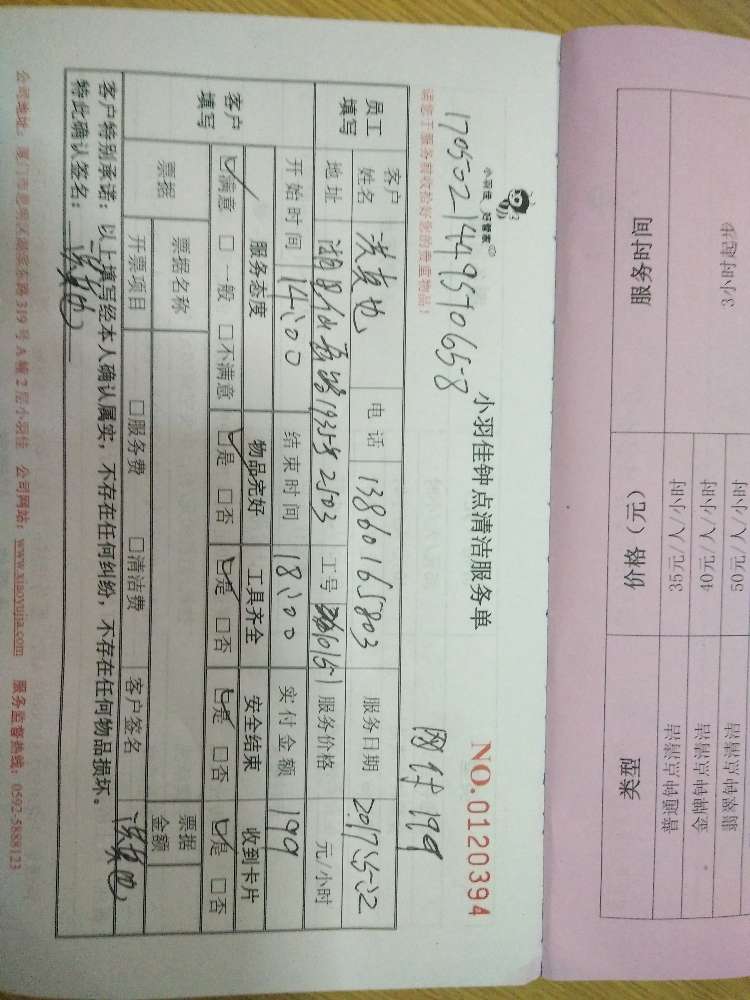 小羽佳 好管家
小羽佳钟点清洁服务单
NO.0120394
170502144957065-8
网付199
请您于服务前收拾好您的贵重物品！
员工填写
客户姓名
电话 13860165803
服务日期 2017.5.12
地址
1935号2503
工号
服务价格 元/小时
开始时间 14:00
结束时间 18:00
实付金额 199
客户填写
服务态度 物品完好 工具齐全 安全结束 收到卡片
☑满意 □一般 □不满意 ☑是 □否 ☑是 □否 ☑是 □否 ☑是 □否
票据
票据名称
票据金额
开票项目 □服务费 □清洁费 客户签名
客户特别承诺：以上填写经本人确认属实，不存在任何纠纷，不存在任何物品损坏。
特此确认签名：
公司地址：厦门市思明区湖滨东路319号A幢2层小羽佳 公司网站：www.xiaoyujia.com 服务监督热线：0592-5888123
类型 价格（元） 服务时间
普通钟点清洁 35元/人/小时
金牌钟点清洁 40元/人/小时
翡翠钟点清洁 50元/人/小时
3小时起